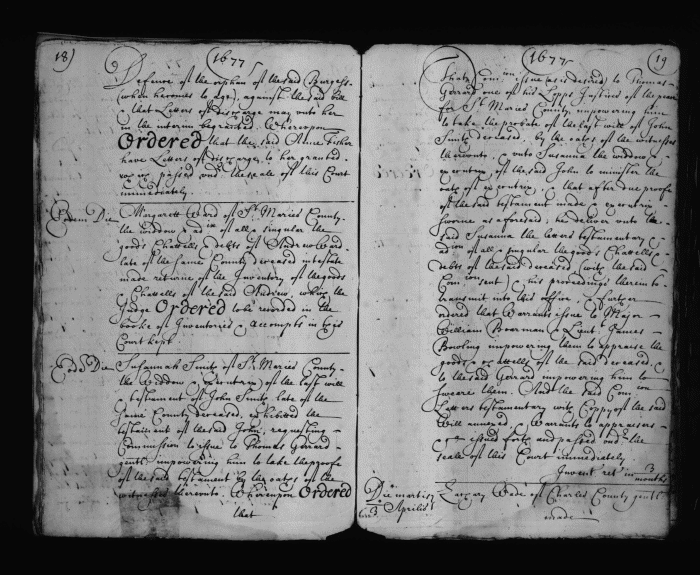 18)
1677
Defence of the orphan of the said Burgess
(when he comes to age) against the said Will
that Letters of discharge may unto her
in the interim be granted. Whereupon
Ordered that the said Anne Fisher
have Letters of discharge to her granted
passed und.r the seale of this Court
immediately
Eodem Die
Margarett Ward of St. Maries County
the widdow & ad.ix of all & singular the
goods Chattells & debts of Andrew Ward
late of the same County deceased intestate
made returne of the Inventory of the goods
& Chattells of the said Andrew, which the
Judge Ordered to be recorded in the
booke of Inventories & Accompts in this
Court kept
Eod. Die
Susannah Smith of St. Maries County
the Widdow & Executrix of the last will
& testament of John Smith late of the
same County deceased, exhibited the
testament of the said John, requesting
Commission to issue to Thomas Gerrard
gent. impowering him to take the proofe
of the said testament by the oathes of the
witnesses thereunto. Whereupon Ordered
that
1677
19
That Com.on issue (as is desired) to Thomas
Gerrard one of his Lpps Justices of the peace
for St. Maries County, impowering him
to take the probate of the last will of John
Smith deceased, by the oathes of the witnesses
thereunto, & unto Susanna the widdow &
executrix of the said John to minister the
oath of executrix, & that after due proofe
of the said testament made & executrix
sworne as aforesaid, he deliver unto the
said Susanna the letters testamentary &
ad.on of all & singular the goods Chattells &
debts of the said deceased, with the said
Com.on sent & his proceedings therein to
transmit into this office. & further
ordered that Warrants issue to Major
William Boarman & Lieut. James
Bowling impowering them to appraise the
goods & Chattells of the said deceased, &
to the said Gerrard impowering him to
sweare them. And the said Com.on
Letters testamentary with Coppy of the said
Will annexed & Warrants to appraisers
issued forth and passed und.r the
seale of this Court immediately
Invent. ret. in 3
months
Die martis
3 Aprilis
Zachary Wade of Charles County gent.
made